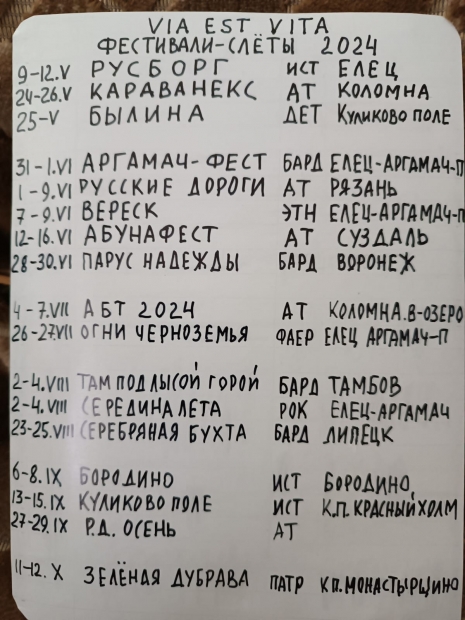 VIA EST VITA
ФЕСТИВАЛИ-СЛЁТЫ 2024
9-12.V РУСБОРГ ИСТ ЕЛЕЦ
24-26.V КАРАВАНЕКС АТ КОЛОМНА
25-V БЫЛИНА ДЕТ КУЛИКОВО ПОЛЕ
31-1.VI АРГАМАЧ-ФЕСТ БАРД ЕЛЕЦ-АРГАМАЧ-П
1-9.VI РУССКИЕ ДОРОГИ АТ РЯЗАНЬ
7-9.VI ВЕРЕСК ЭТН ЕЛЕЦ-АРГАМАЧ-П
12-16.VI АБУНАФЕСТ АТ СУЗДАЛЬ
28-30.VI ПАРУС НАДЕЖДЫ БАРД ВОРОНЕЖ
4-7.VII АБТ 2024 АТ КОЛОМНА.В-ОЗЕРО
26-27.VII ОГНИ ЧЕРНОЗЕМЬЯ ФАЕР ЕЛЕЦ АРГАМАЧ-П
2-4.VIII ТАМ ПОД ЛЫСОЙ ГОРОЙ БАРД ТАМБОВ
2-4.VIII СЕРЕДИНА ЛЕТА РОК ЕЛЕЦ-АРГАМАЧ
23-25.VIII СЕРЕБРЯНАЯ БУХТА БАРД ЛИПЕЦК
6-8.IX БОРОДИНО ИСТ БОРОДИНО
13-15.IX КУЛИКОВО ПОЛЕ ИСТ К.П. КРАСНЫЙ ХОЛМ
27-29.IX Р.Д. ОСЕНЬ АТ
11-12.X ЗЕЛЁНАЯ ДУБРАВА ПАТР КП.МОНАСТЫРЩИНО